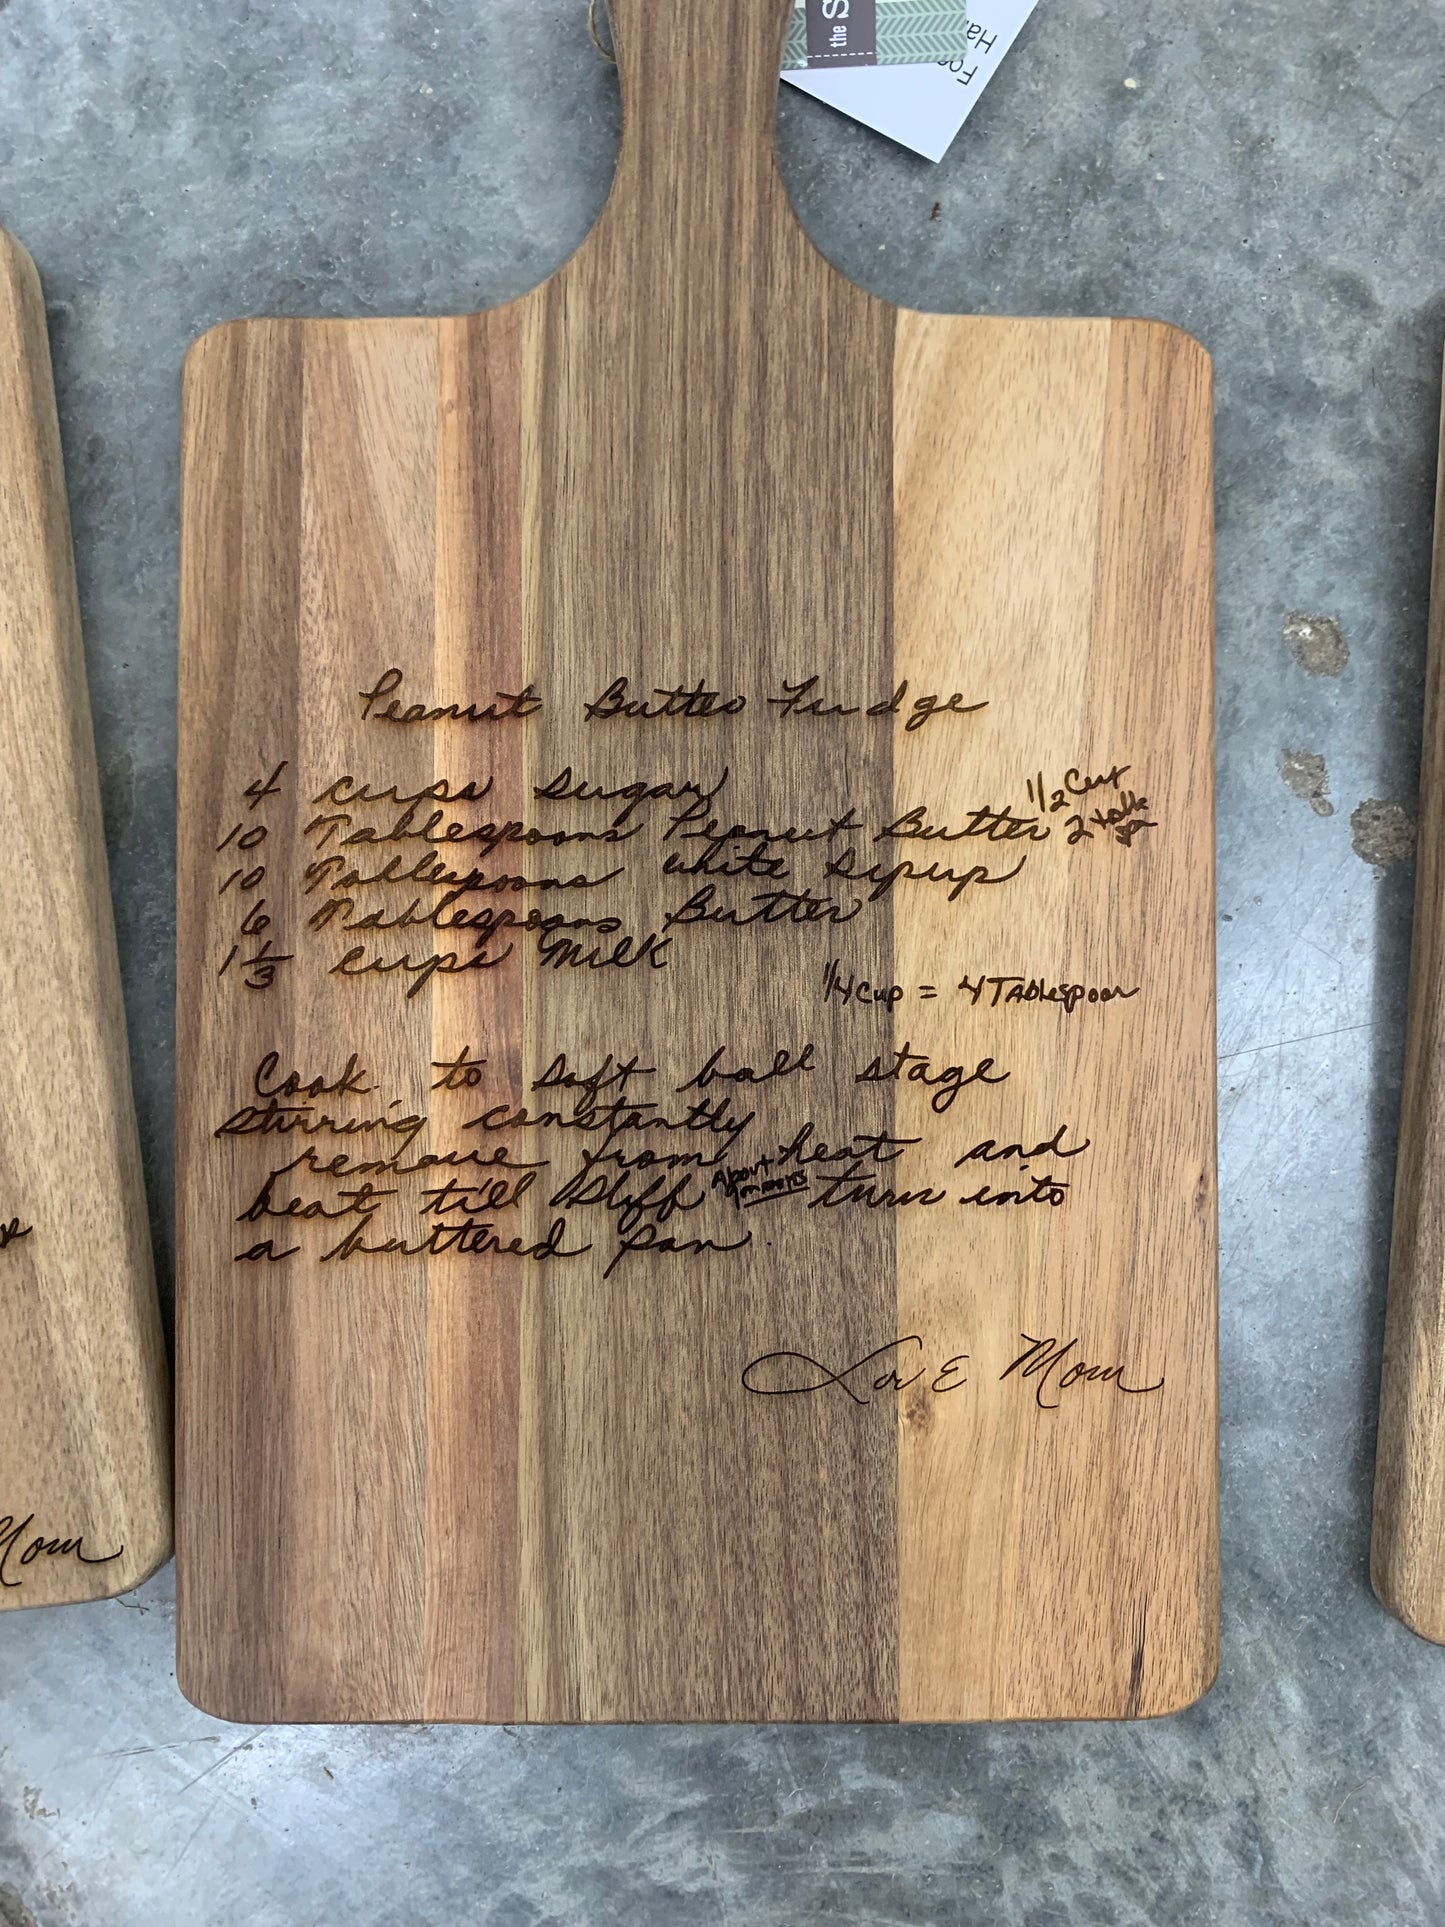 the S
Foo
Ha
Peanut Butter Fudge
4 cups sugar
10 Tablespoons Peanut Butter 1/2 Cup 2 table sp
10 Tablespoons white syrup
6 Tablespoons Butter
1 1/3 cups Milk
1/4 cup = 4 Tablespoon
Cook to soft ball stage
stirring constantly
remove from heat and
beat till stiff About turn into
a buttered pan.
Love Mom
Mom